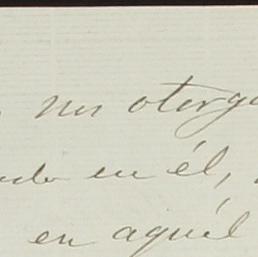 nos otorga
en él,
en aquél